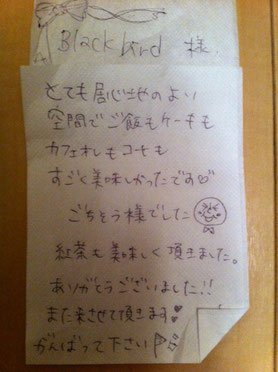 Black bird 様
とても居心地のよい
空間でご飯もケーキも
カフェオレもコーヒーも
すごく美味しかったです♡
ごちそう様でした
紅茶も美味しく頂きました。
ありがとうございました!!
また来させて頂きます♥
がんばって下さい